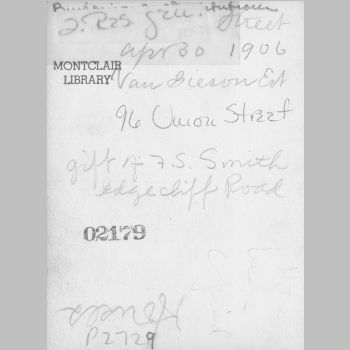 Street
Apr 30 1906
MONTCLAIR
LIBRARY
Van Gieson Est
96 Union Street
gift of F. S. Smith
Edgecliff Road
02179
P2729